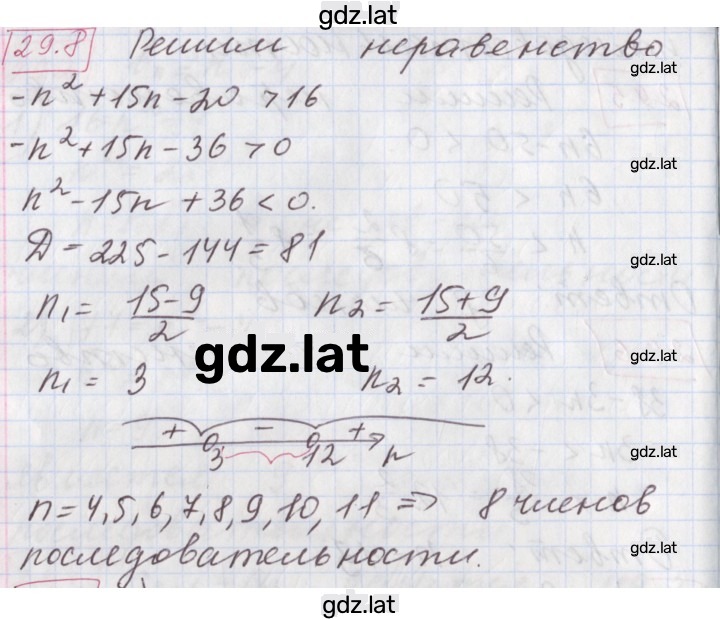 gdz.lat
29.8 Решим неравенство
-n² + 15n - 20 > 16
gdz.lat
-n² + 15n - 36 > 0
gdz.lat
n² - 15n + 36 < 0.
Д = 225 - 144 = 81
gdz.lat
n₁ = (15-9)/2 n₂ = (15+9)/2
gdz.lat
gdz.lat
n₁ = 3 n₂ = 12.
+ - +
3 12 n
gdz.lat
n = 4,5,6,7,8,9,10,11 => 8 членов
gdz.lat
последовательности.
gdz.lat